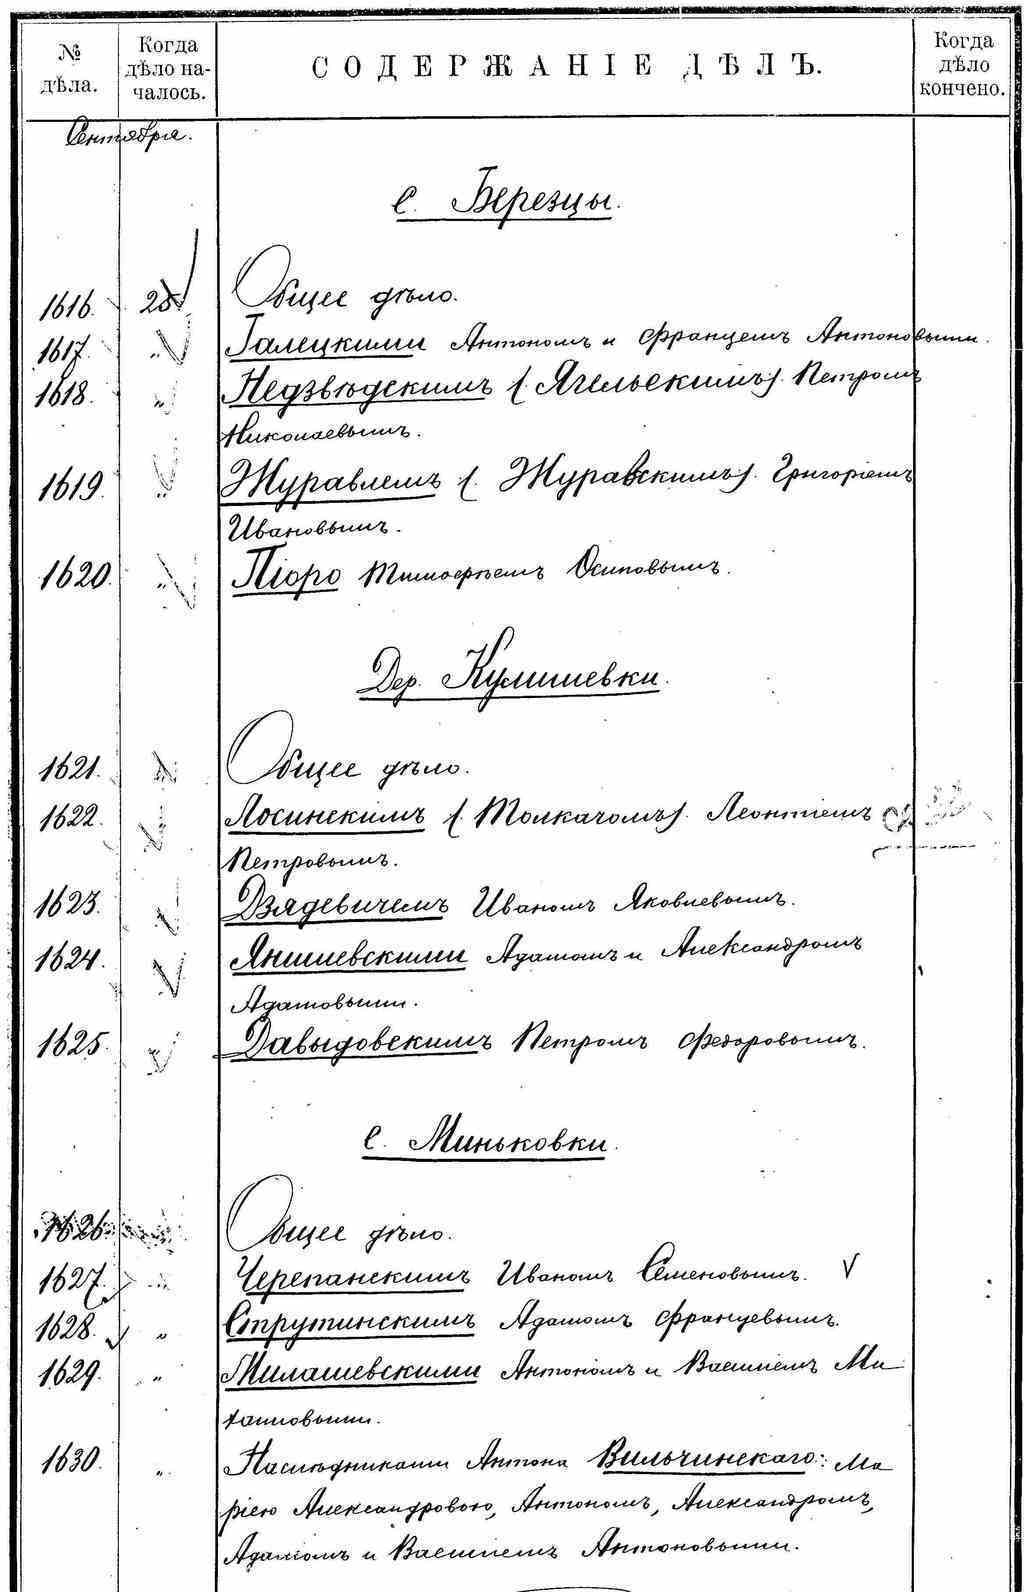 № дѣла.
Когда дѣло на-чалось.
СОДЕРЖАНІЕ ДѢЛЪ.
Когда дѣло кончено.
Сентября.
С. Березцы.
1616. 25 Общее дѣло.
1617. " Галецкими Антономъ и Францемъ Антоновыми.
1618. " Недзвѣдскимъ (Ягельскимъ). Петромъ
Николаевымъ.
1619. " Журавлемъ (Журавскимъ). Григоріемъ
Ивановымъ.
1620. " Піоро Тимофѣемъ Осиповымъ.
Дер. Кулишевки.
1621. " Общее дѣло.
1622. " Лосинскимъ (Толкачомъ). Леонтіемъ
Петровымъ.
1623. " Дзядевичемъ Иваномъ Яковлевымъ.
1624. " Янишевскими Адамомъ и Александромъ
Адамовыми.
1625. " Давыдовскимъ Петромъ Федоровымъ.
С. Миньковки.
1626. " Общее дѣло.
1627. " Черепанскимъ Иваномъ Семеновымъ. V
1628. " Струтинскимъ Адамомъ Францевымъ.
1629. " Милашевскими Антономъ и Василіемъ Ми
1630. " Наслѣдниками Антона Вильчинскаго: Ма
ріею Александровою, Антономъ, Александромъ,
Адамомъ и Василіемъ Антоновыми.